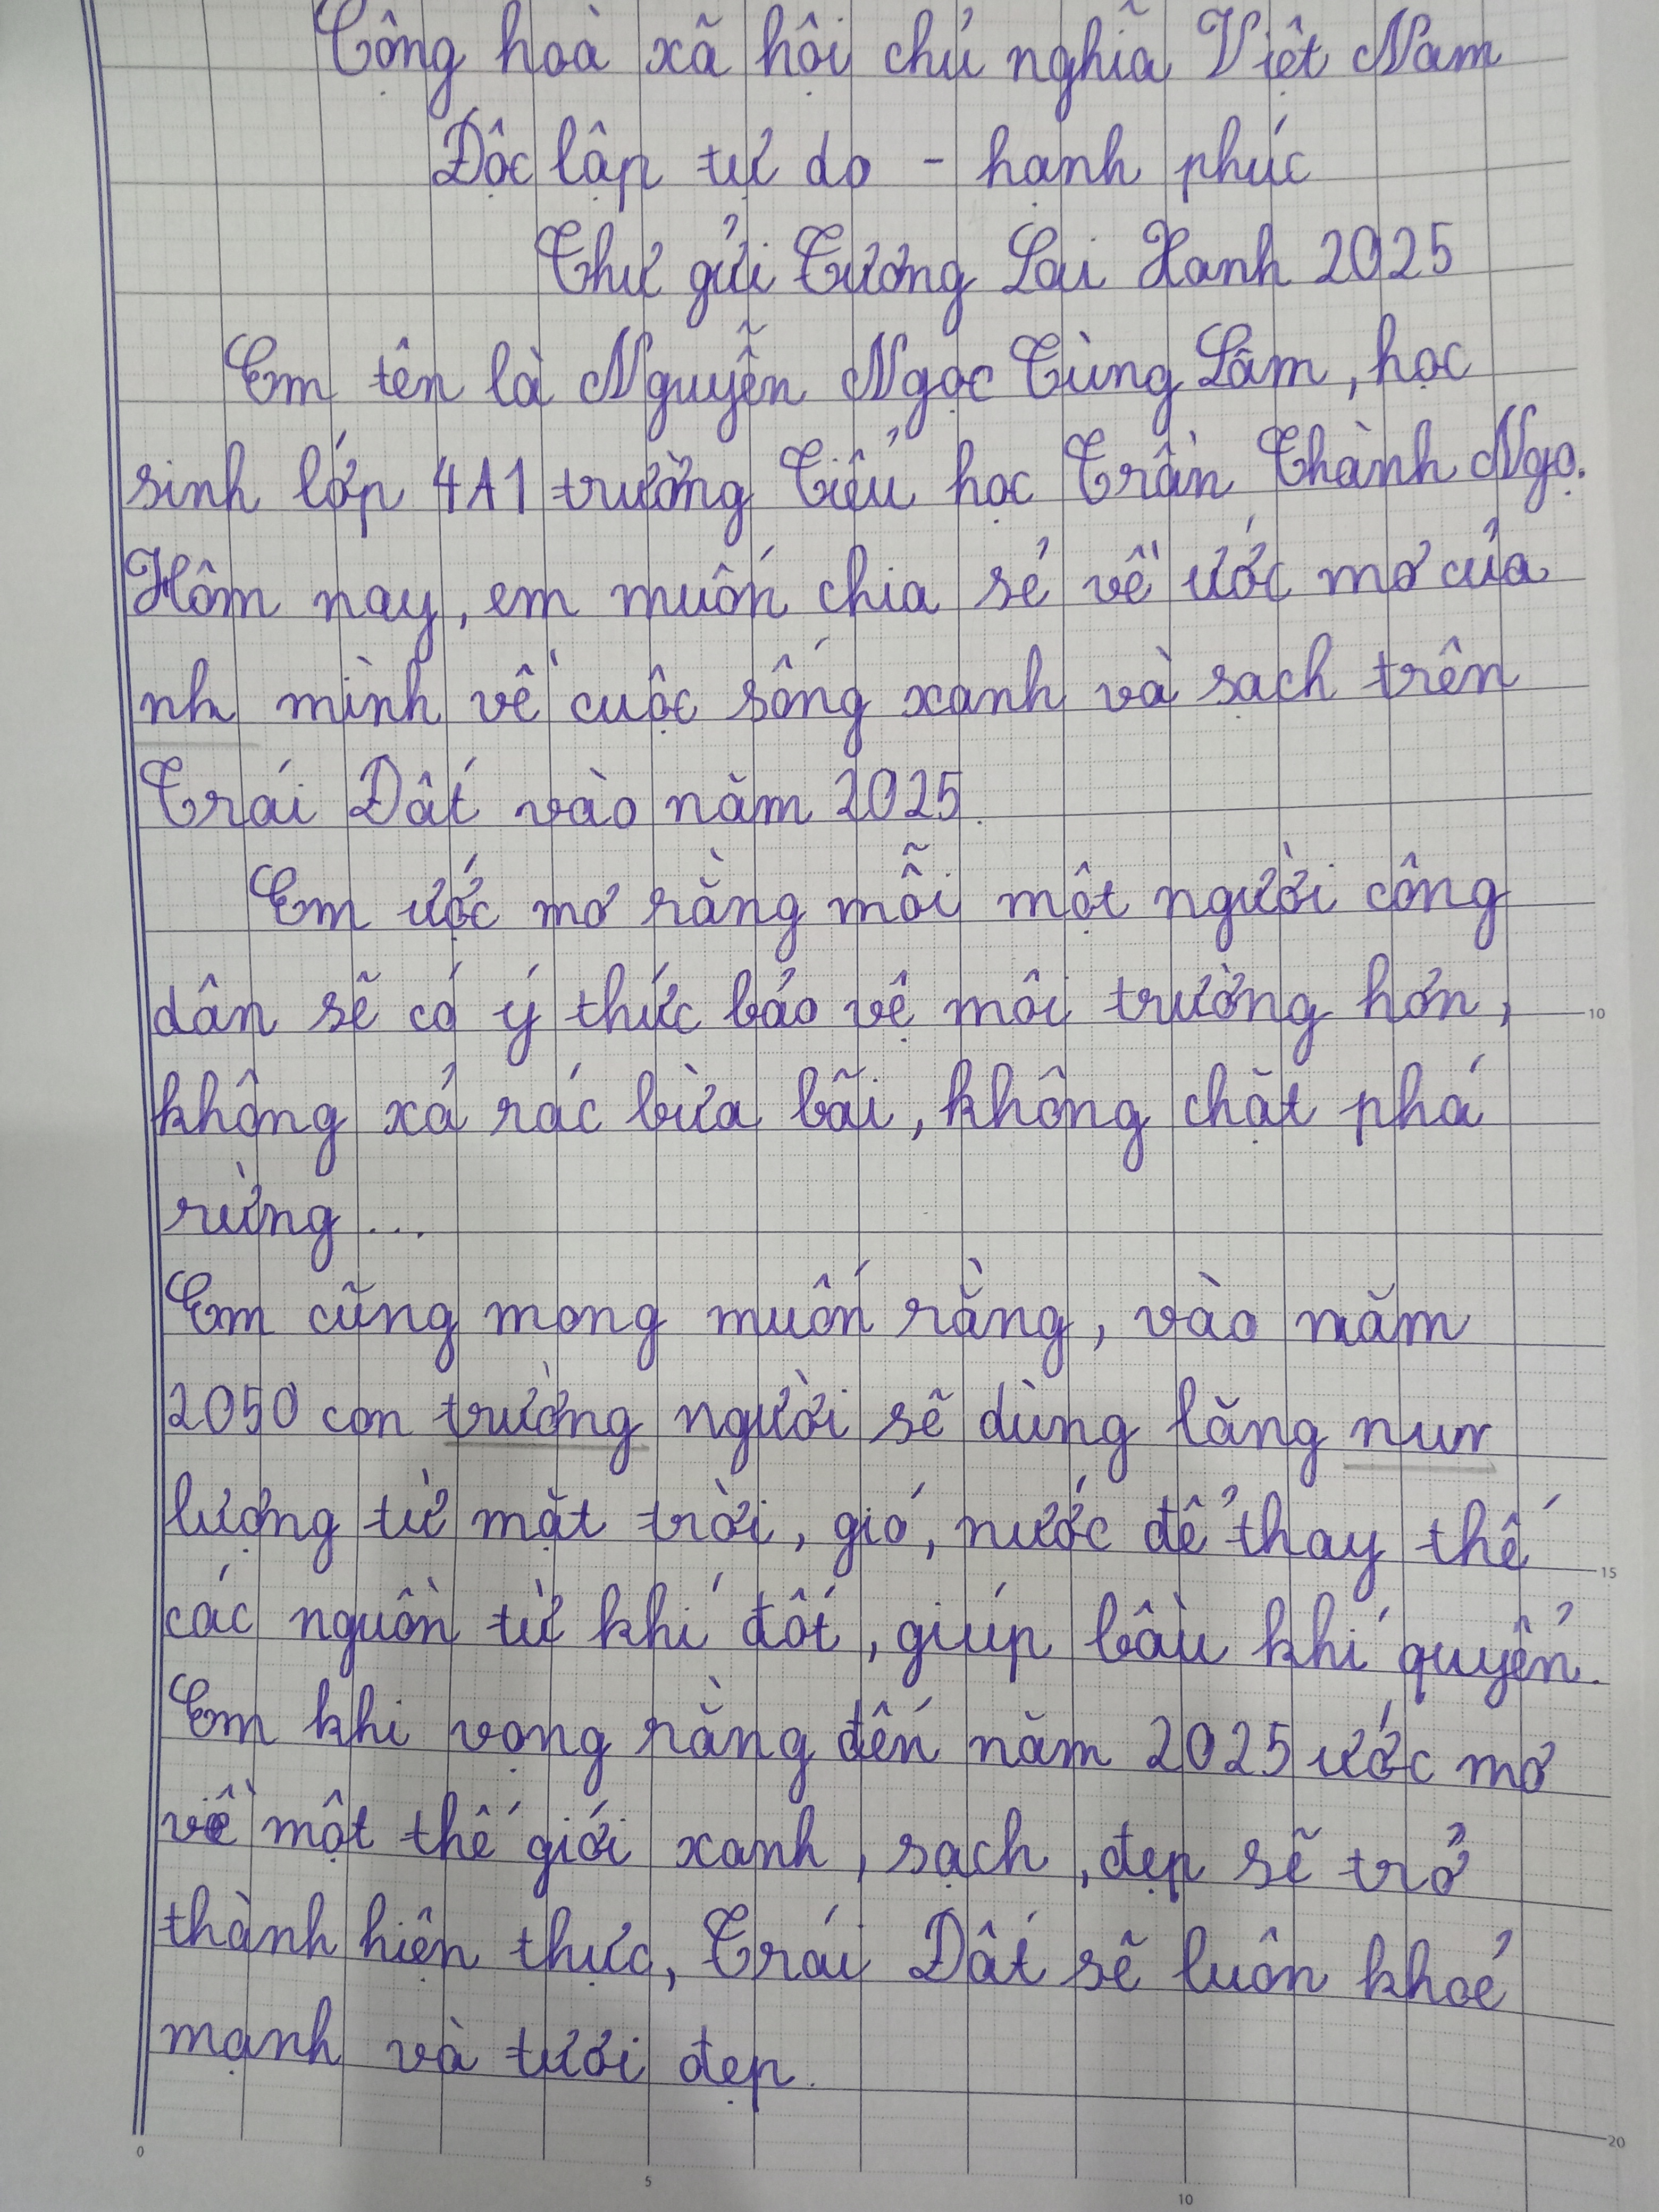 Cộng hoà xã hội chủ nghĩa Việt Nam
Độc lập tự do - hạnh phúc
Thư gửi Tương Lai Xanh 2025
Em tên là Nguyễn Ngọc Tùng Lâm, học
sinh lớp 4A1 trường Tiểu học Trần Thành Ngọ.
Hôm nay, em muốn chia sẻ về ước mơ của
nh mình về cuộc sống xanh và sạch trên
Trái Đất vào năm 2025.
Em ước mơ rằng mỗi một người công
dân sẽ có ý thức bảo vệ môi trường hơn,
10
không xả rác bừa bãi, không chặt phá
rừng...
Em cũng mong muốn rằng, vào năm
2050 con trường người sẽ dùng lăng nur
lượng từ mặt trời, gió, nước để thay thế
15
các nguồn từ khí đốt, giúp bầu khí quyển.
Em khi vọng rằng đến năm 2025 ước mơ
về một thế giới xanh, sạch, đẹp sẽ trở
thành hiện thực, Trái Đất sẽ luôn khoẻ
mạnh và tươi đẹp.
0 5 10 20